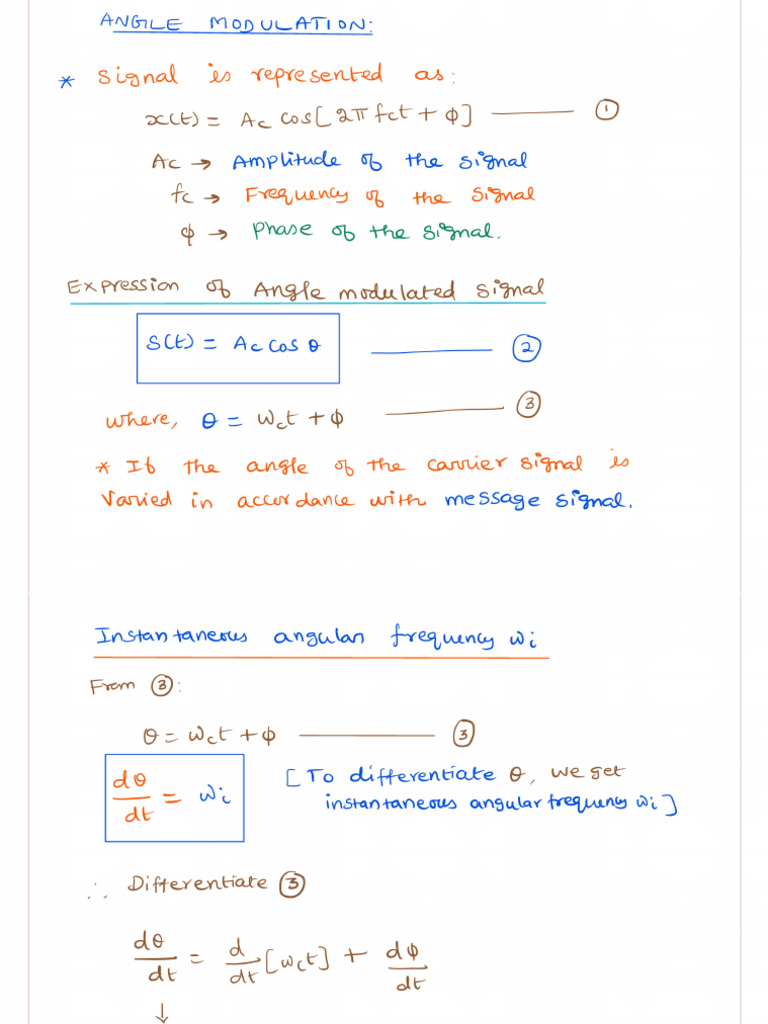 ANGLE MODULATION:
* Signal is represented as:
x(t) = Ac cos[2πfct + ϕ] ——— ①
Ac → Amplitude of the signal
fc → Frequency of the signal
ϕ → Phase of the signal.
Expression of Angle modulated signal
S(t) = Ac cos θ ——— ②
where, θ = ωct + ϕ ——— ③
* If the angle of the carrier signal is
varied in accordance with message signal.
Instantaneous angular frequency ωi
From ③:
θ = ωct + ϕ ——— ③
dθ/dt = ωi [To differentiate θ, we get
instantaneous angular frequency ωi]
∴ Differentiate ③
dθ/dt = d/dt [ωct] + dϕ/dt
↓